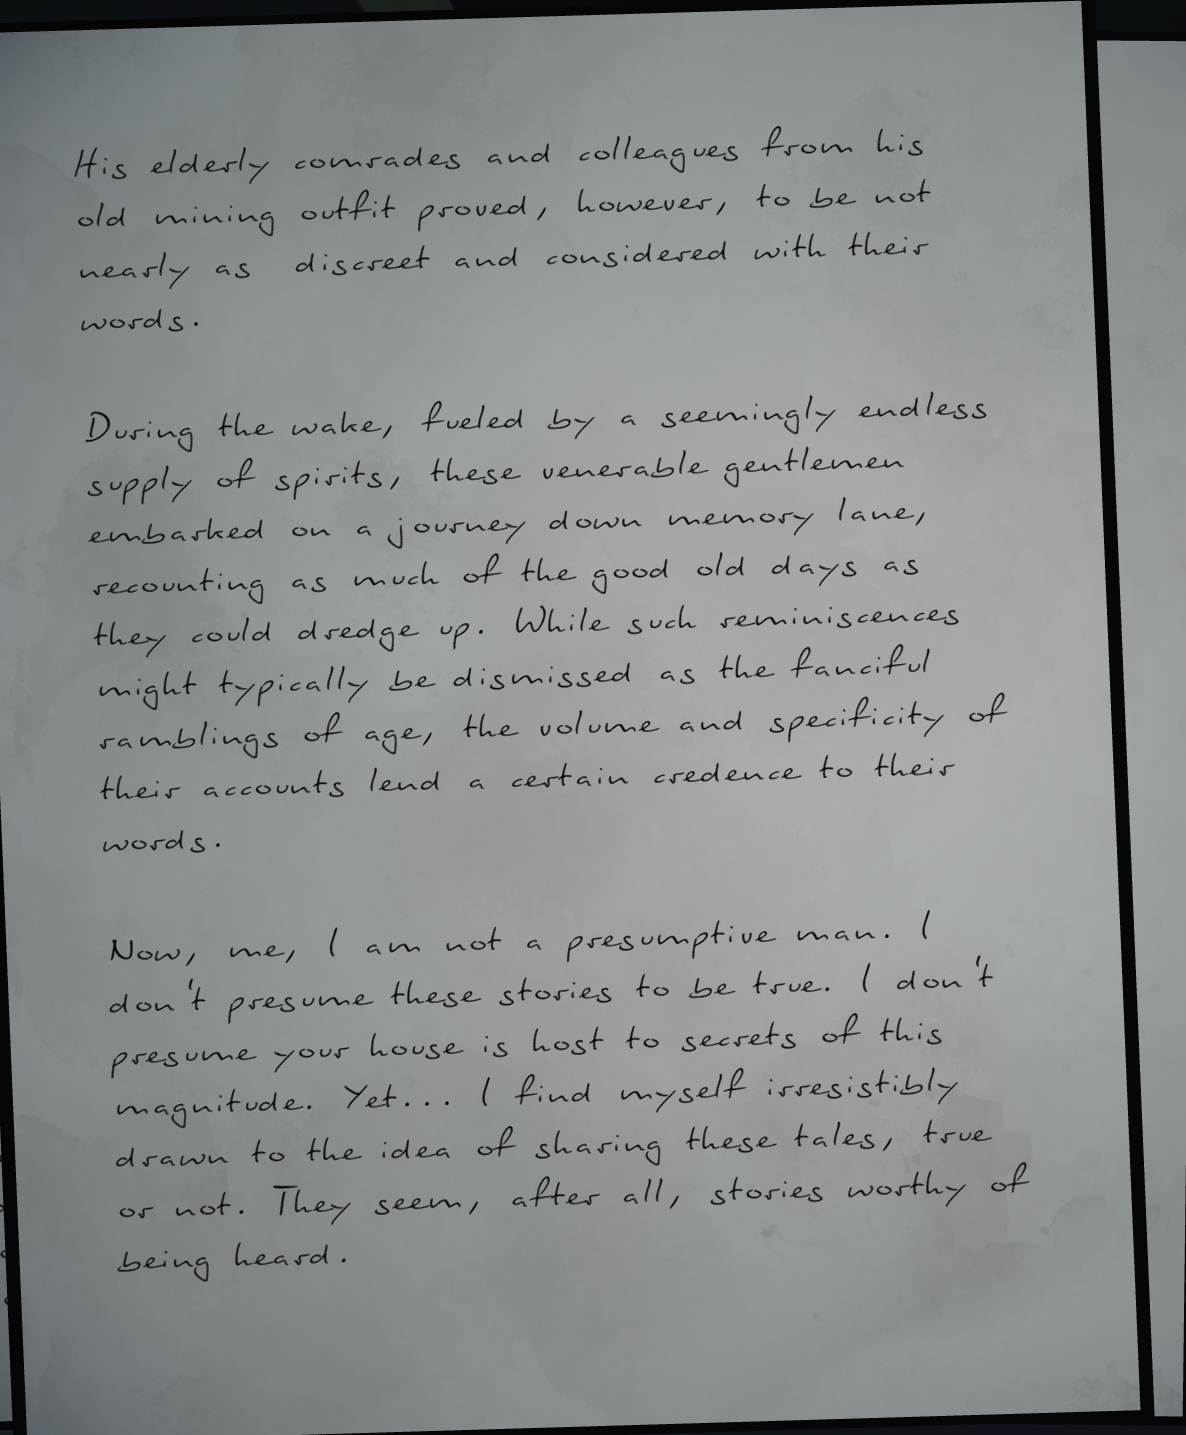 His elderly comrades and colleagues from his
old mining outfit proved, however, to be not
nearly as discreet and considered with their
words.
During the wake, fueled by a seemingly endless
supply of spirits, these venerable gentlemen
embarked on a journey down memory lane,
recounting as much of the good old days as
they could dredge up. While such reminiscences
might typically be dismissed as the fanciful
ramblings of age, the volume and specificity of
their accounts lend a certain credence to their
words.
Now, me, I am not a presumptive man. I
don't presume these stories to be true. I don't
presume your house is host to secrets of this
magnitude. Yet... I find myself irresistibly
drawn to the idea of sharing these tales, true
or not. They seem, after all, stories worthy of
being heard.